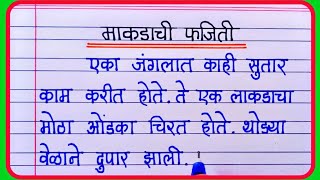 माकडाची फजिती
एका जंगलात काही सुतार
काम करीत होते. ते एक लाकडाचा
मोठा ओंडका चिरत होते. थोड्या
वेळाने दुपार झाली.